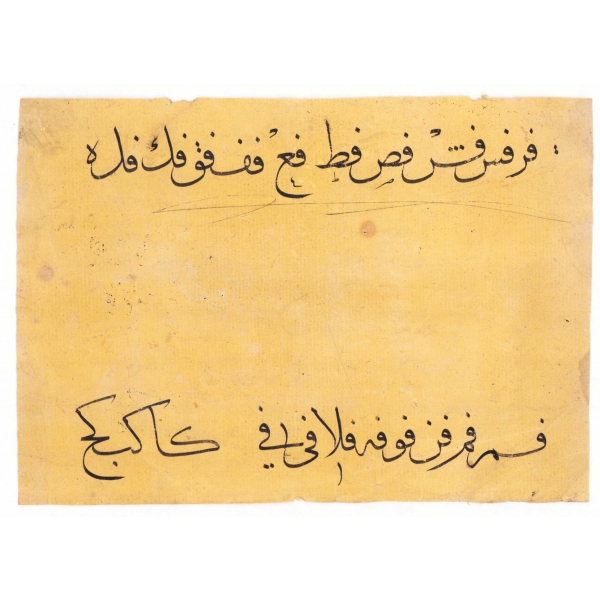 فر فس فش فص فط فع فف فق فك فل ه
فم فم فن فو فه فلا فى فى كا كب كج